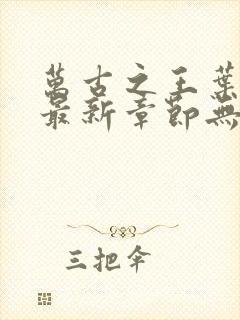 萬古之王葉
最新章節無
三把傘